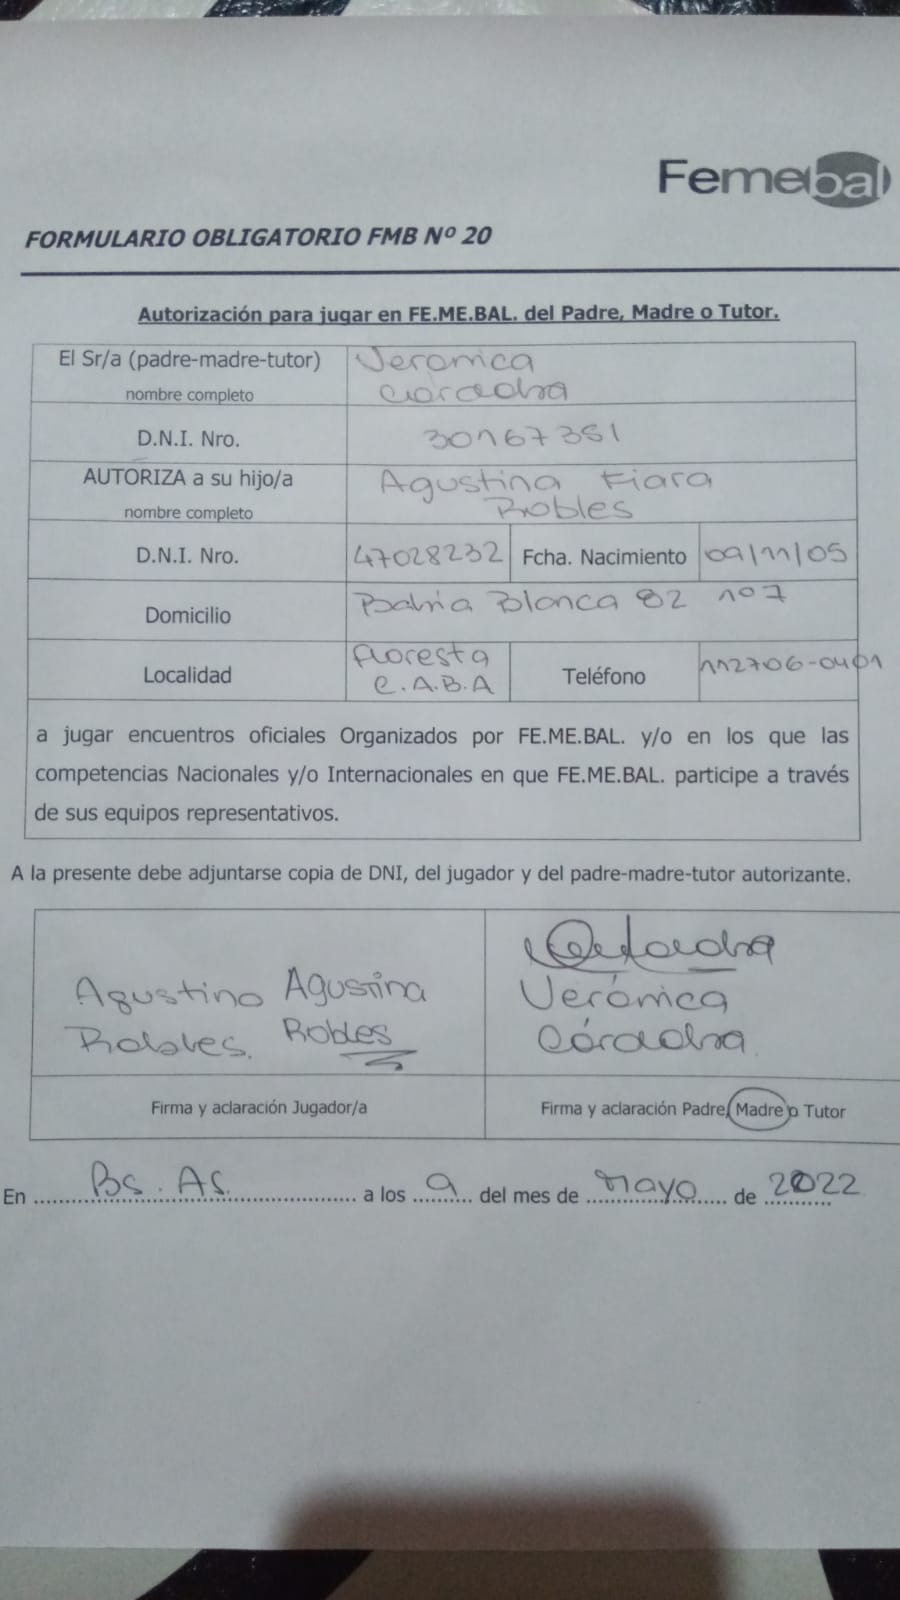 Femebal
FORMULARIO OBLIGATORIO FMB Nº 20
Autorización para jugar en FE.ME.BAL. del Padre, Madre o Tutor.
El Sr/a (padre-madre-tutor)
nombre completo
Verónica
Córdoba
D.N.I. Nro.
30167351
AUTORIZA a su hijo/a
nombre completo
Agustina Kiara
Robles
D.N.I. Nro.
47028232
Fcha. Nacimiento
09/11/05
Domicilio
Bahia Blanca 82 107
Localidad
Floresta
C.A.B.A
Teléfono
112706-0401
a jugar encuentros oficiales Organizados por FE.ME.BAL. y/o en los que las
competencias Nacionales y/o Internacionales en que FE.ME.BAL. participe a través
de sus equipos representativos.
A la presente debe adjuntarse copia de DNI, del jugador y del padre-madre-tutor autorizante.
Agustina
Robles.
Agustina
Robles
Verónica
Córdoba.
Firma y aclaración Jugador/a
Firma y aclaración Padre, Madre o Tutor
En Bs. As. a los 9 del mes de Mayo de 2022